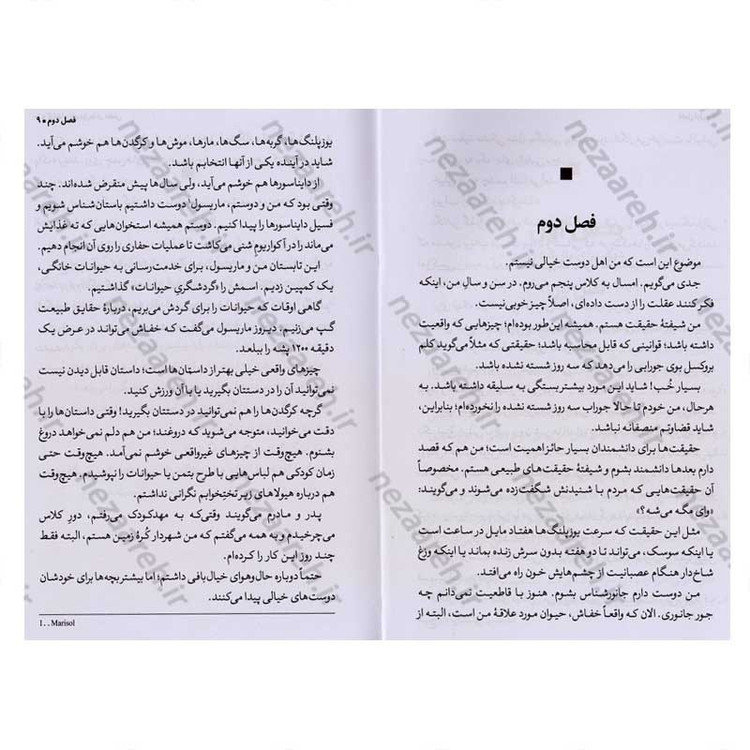 فصل دوم
موضوع این است که من اهل دوست خیالی نیستم.
جدی می‌گویم. امسال به کلاس پنجم می‌روم. در سن و سالِ من، اینکه
فکر کنند عقلت را از دست داده‌ای، اصلاً چیز خوبی نیست.
من شیفتهٔ حقیقت هستم. همیشه این‌طور بوده‌ام؛ چیزهایی که واقعیت
داشته باشد؛ قوانینی که قابل محاسبه باشد؛ حقیقتی که مثلاً می‌گوید کلم
بروکسل بوی جورابی را می‌دهد که سه روز شسته نشده باشد.
بسیار خُب! شاید این مورد بیشتر بستگی به سلیقه داشته باشد. به
هرحال، من خودم تا حالا جوراب سه روز شسته نشده را نخورده‌ام؛ بنابراین،
شاید قضاوتم منصفانه نباشد.
حقیقت‌ها برای دانشمندان بسیار حائز اهمیت است؛ من هم که قصد
دارم بعدها دانشمند بشوم و شیفتهٔ حقیقت‌های طبیعی هستم. مخصوصاً
آن حقیقت‌هایی که مردم با شنیدنش شگفت‌زده می‌شوند و می‌گویند:
«وای مگه می‌شه؟»
مثل این حقیقت که سرعت یوزپلنگ‌ها هفتاد مایل در ساعت است
یا اینکه سوسک، می‌تواند تا دو هفته بدون سرش زنده بماند یا اینکه وزغ
شاخ‌دار هنگام عصبانیت از چشم‌هایش خون راه می‌افتد.
من دوست دارم جانورشناس بشوم. هنوز با قاطعیت نمی‌دانم چه
جور جانوری. الان که واقعاً خفاش، حیوان مورد علاقهٔ من است، البته از
فصل دوم ■ ۹
یوزپلنگ‌ها، گربه‌ها، سگ‌ها، مارها، موش‌ها و کرگدن‌ها هم خوشم می‌آید.
شاید در آینده یکی از آنها انتخابم باشد.
از دایناسورها هم خوشم می‌آید، ولی سال‌ها پیش منقرض شده‌اند. چند
وقتی بود که من و دوستم، ماریسول¹ دوست داشتیم باستان‌شناس شویم و
فسیل دایناسورها را پیدا کنیم. دوستم همیشه استخوان‌هایی که ته غذایش
می‌ماند را در آکواریومِ شنی می‌کاشت تا عملیات حفاری را روی آن انجام دهیم.
این تابستان من و ماریسول، برای خدمت‌رسانی به حیوانات خانگی،
یک کمپین زدیم. اسمش را «گردشگریِ حیوانات» گذاشتیم.
گاهی اوقات که حیوانات را برای گردش می‌بریم، دربارهٔ حقایق طبیعت
گپ می‌زنیم. دیروز ماریسول می‌گفت که خفاش می‌تواند در عرض یک
دقیقه ۱۲۰۰ پشه را ببلعد.
چیزهای واقعی خیلی بهتر از داستان‌ها است؛ داستان قابل دیدن نیست
نمی‌توانید آن را در دستتان بگیرید یا با آن ورزش کنید.
گرچه کرگدن‌ها را هم نمی‌توانید در دستتان بگیرید! وقتی داستان‌ها را با
دقت می‌خوانید، متوجه می‌شوید که دروغند؛ من هم دلم نمی‌خواهد دروغ
بشنوم. هیچ‌وقت از چیزهای غیرواقعی خوشم نمی‌آمد. هیچ‌وقت حتی
زمان کودکی هم لباس‌هایی با طرح بتمن یا حیوانات را نپوشیدم. هیچ‌وقت
هم درباره هیولاهای زیر تختخوابم نگرانی نداشتم.
پدر و مادرم می‌گویند وقتی‌که به مهدکودک می‌رفتم، دورِ کلاس
می‌چرخیدم و به همه می‌گفتم که من شهردار کُرهٔ زمین هستم، البته فقط
چند روز این کار را کرده‌ام.
حتماً دوباره حال‌وهوای خیال‌بافی داشتم؛ اما بیشتر بچه‌ها برای خودشان
دوست‌های خیالی پیدا می‌کنند.
1. . Marisol
nezaareh.ir